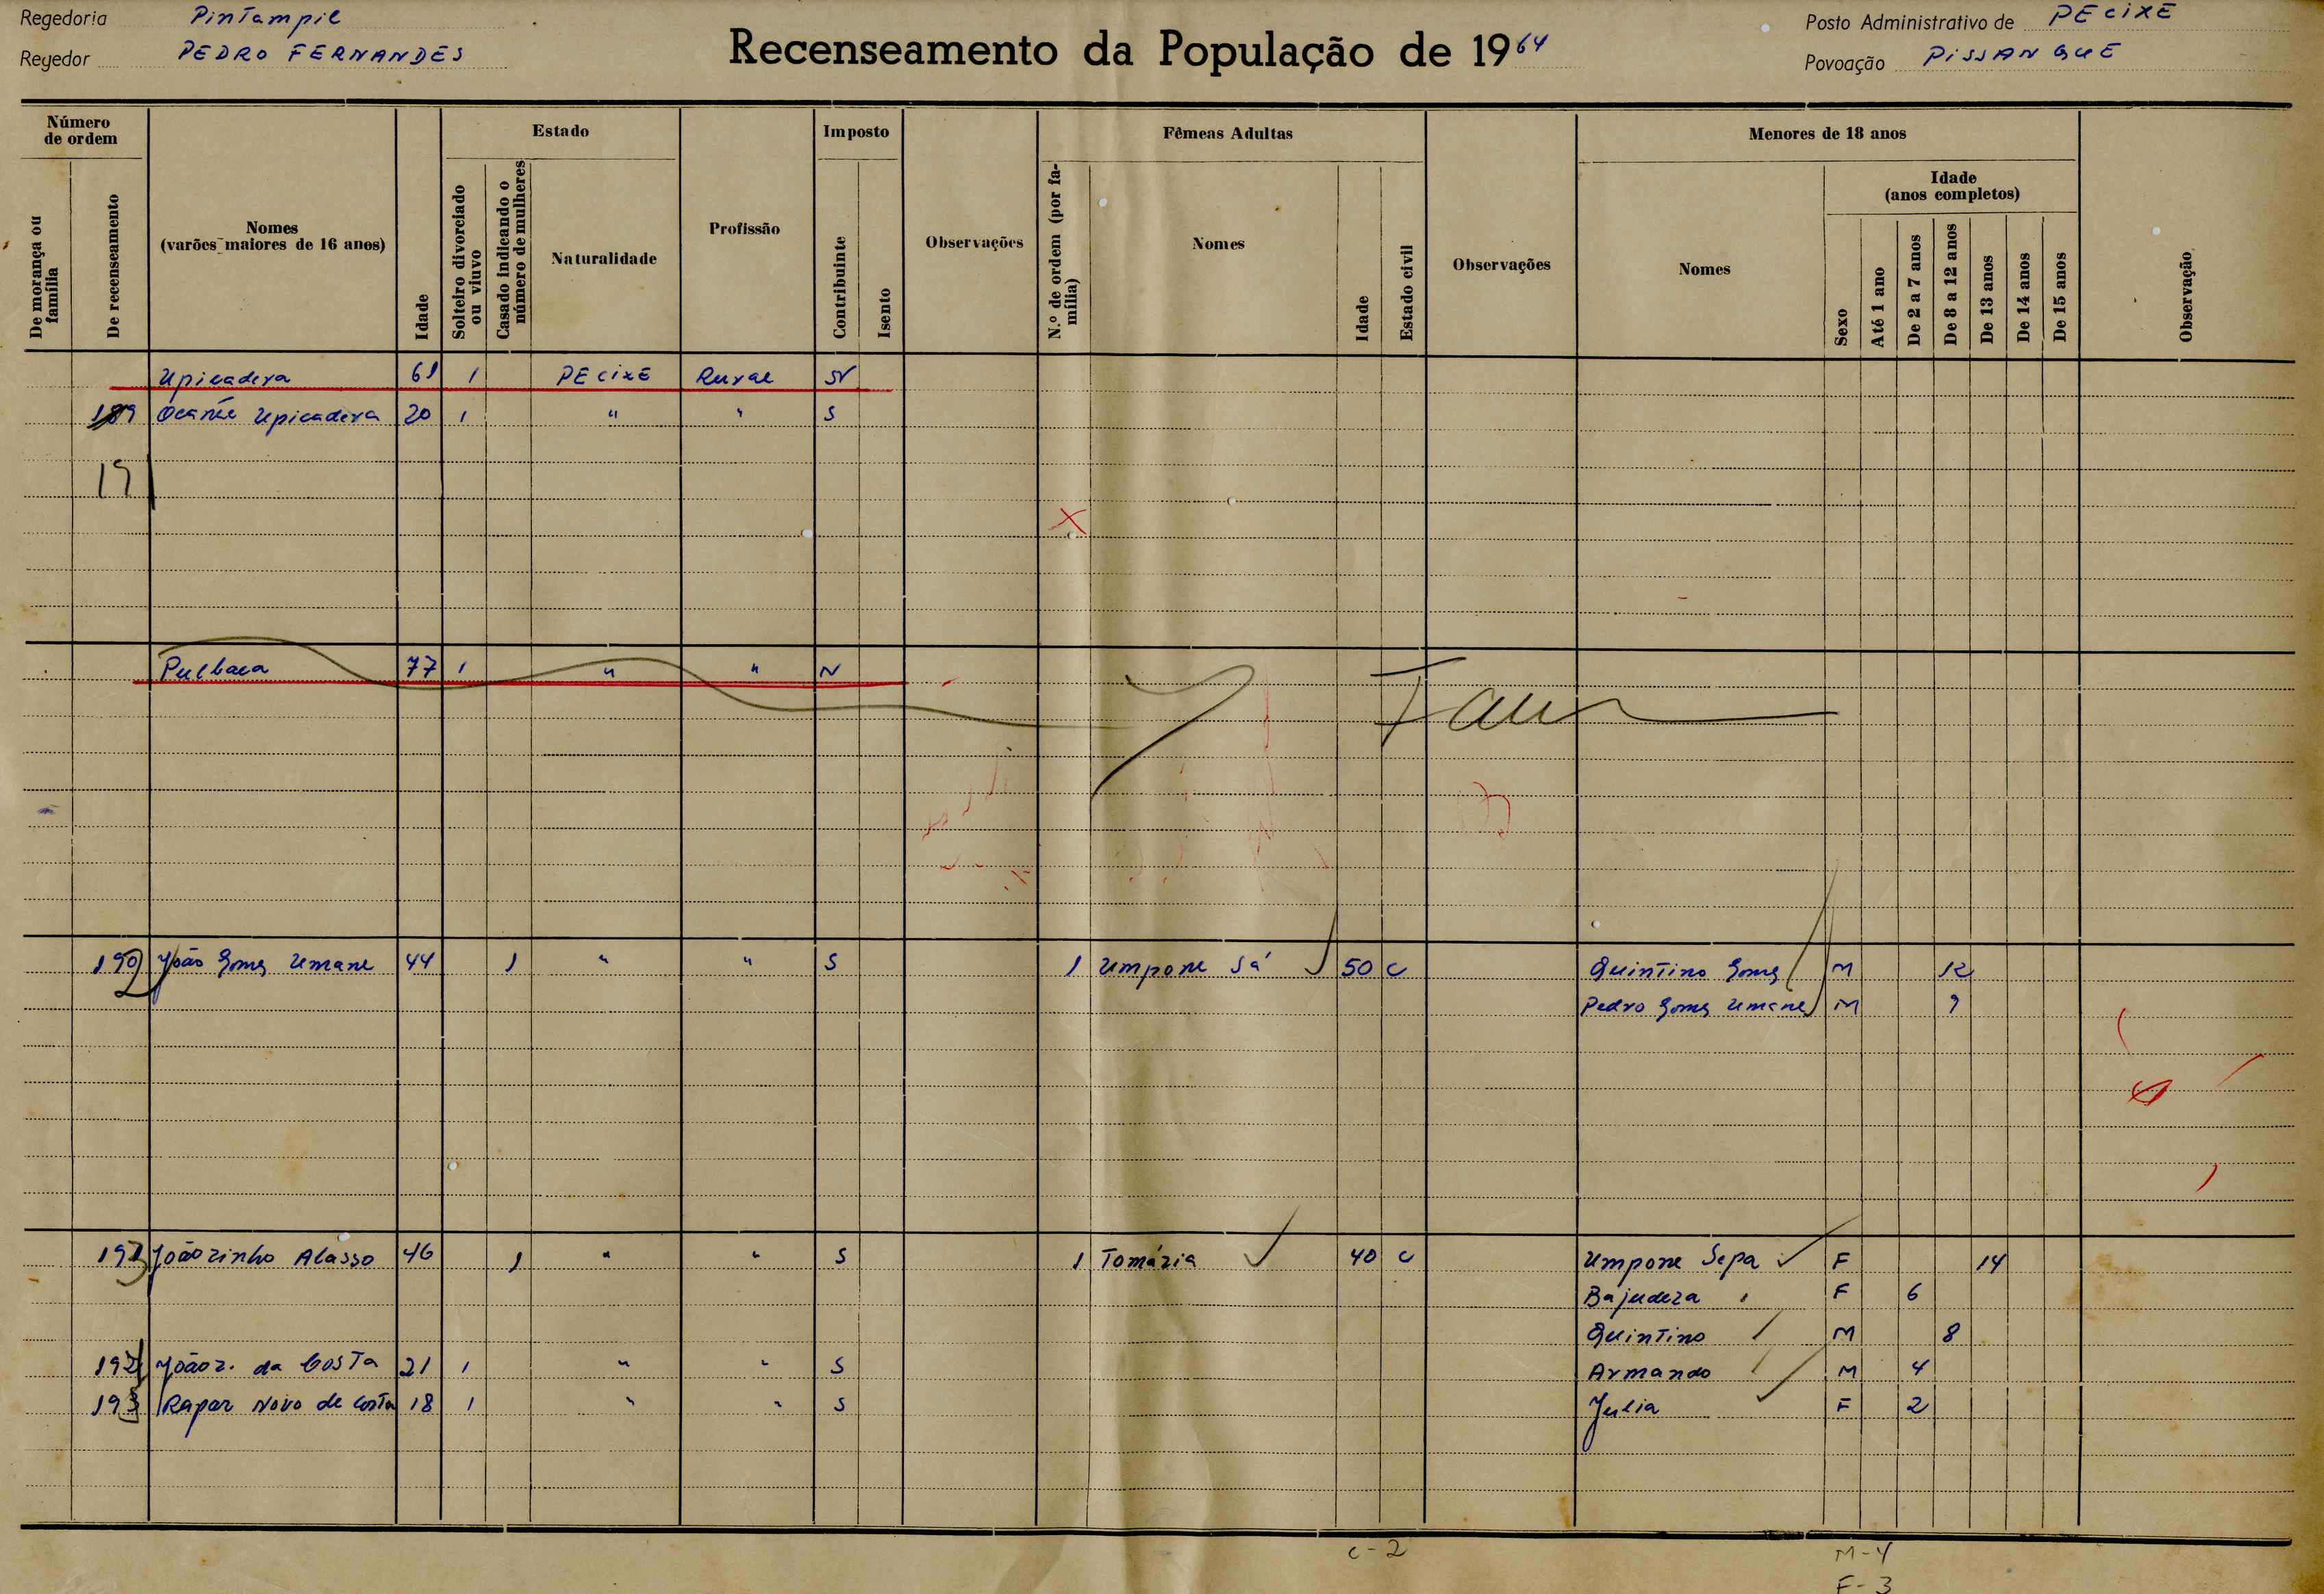 Regedoria Pintampil
Regedor PEDRO FERNANDES
Recenseamento da População de 1964
Posto Administrativo de PECIXE
Povoação PISSANQUE
Número de ordem
De morança ou família
De recenseamento
Nomes
(varões maiores de 16 anos)
Idade
Estado
Solteiro divorciado ou viuvo
Casado indicando o número de mulheres
Naturalidade
Profissão
Imposto
Contribuinte
Isento
Observações
Fêmeas Adultas
N.º de ordem (por família)
Nomes
Idade
Estado civil
Observações
Menores de 18 anos
Nomes
Sexo
Idade
(anos completos)
Até 1 ano
De 2 a 7 anos
De 8 a 12 anos
De 13 anos
De 14 anos
De 15 anos
Observação
Upicadera 61 1 PECIXE Rural
189 Upicadera 20 1 " " S
191
Pulbaca 77 1 " " N
190 João Gomes Umane 44 1 " " S 1 Umpone Sá 50 C Quintino Gomes M 12
Pedro Gomes Umane M 9
Joãozinho Alasso 46 1 " " S 1 Tomázia 40 C Umpone Sepa F 14
Bajudeza F 6
Quintino M 8
Joãoz. da Costa 21 1 " " S Armando M 4
193 Rapaz Novo de Costa 18 1 " " S Julia F 2
C-2
M-4
F-3